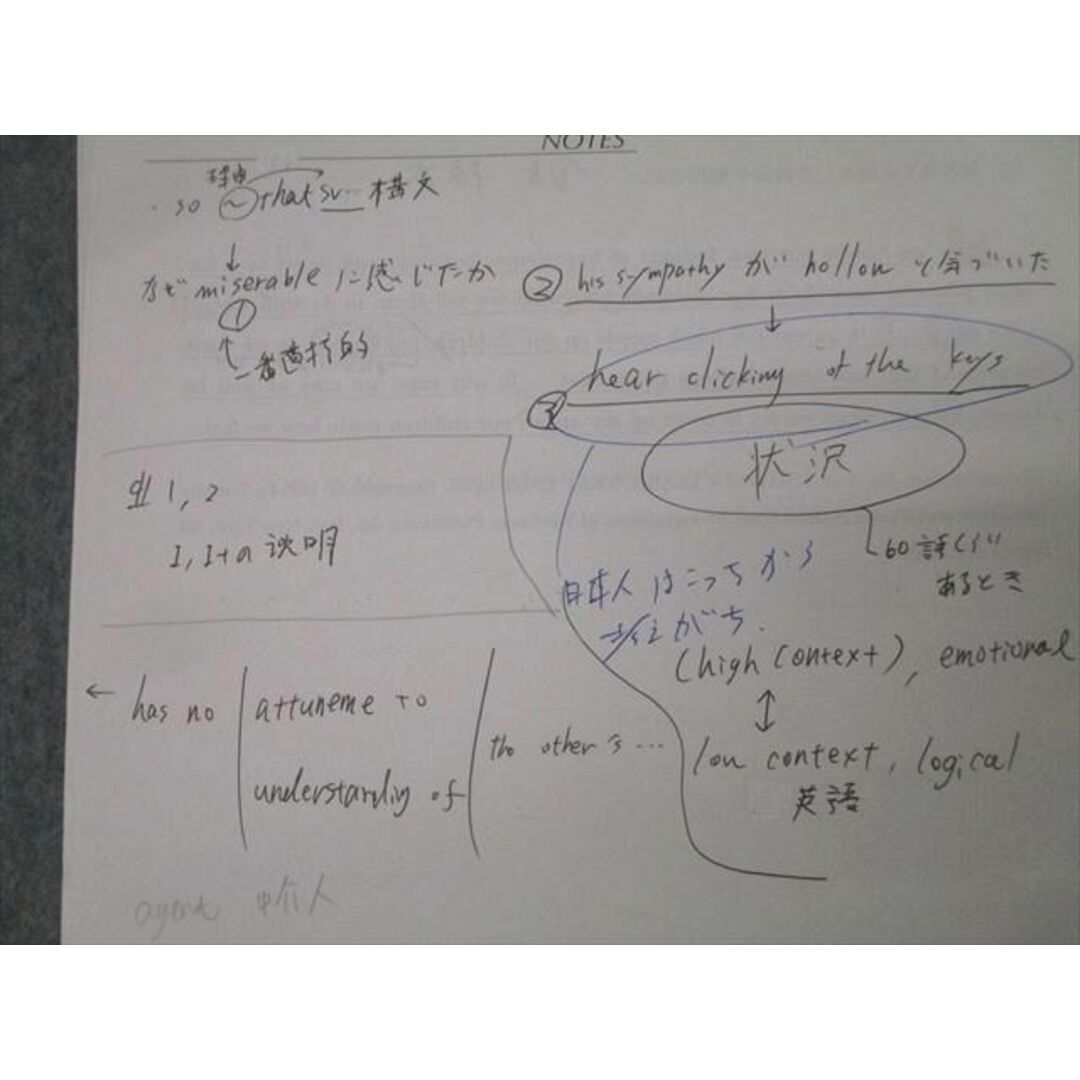 NOTES
理由
・so ~ that sv… 構文
なぜ miserable に感じたか
①
一番直接的
② his sympathy が hollow と気づいた
③ hear clicking of the keys
状況
60語ぐらい
あるとき
1, 2
1, 1+a 説明
日本人はこっちから
考えがち.
(high context), emotional
low context, logical
英語
← has no
attuneme to
understanding of
the other's …
agent 仲介人